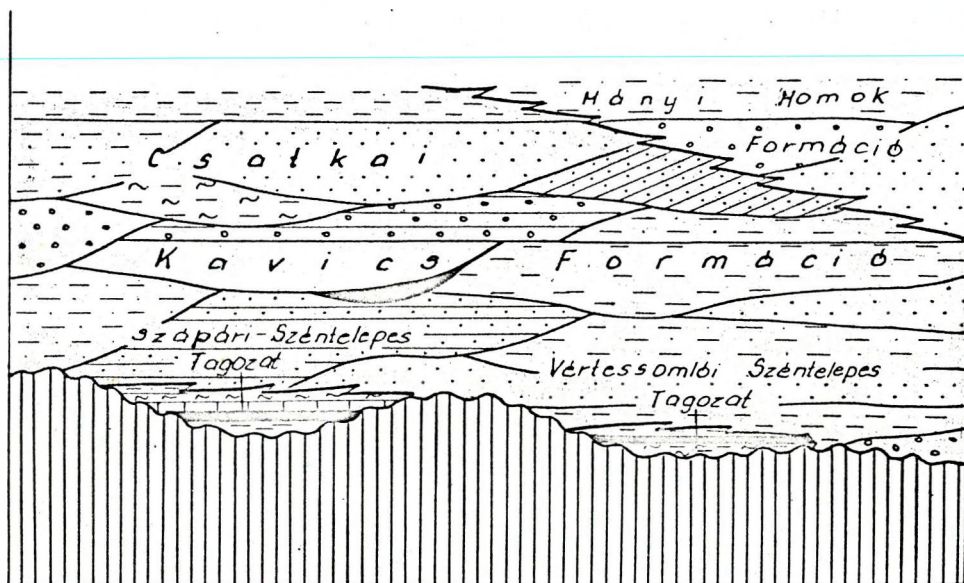 Mányi Homok
Formáció
Csatkai
Kavics Formáció
Szápári-Széntelepes
Tagozat
Vértessomlói Széntelepes
Tagozat